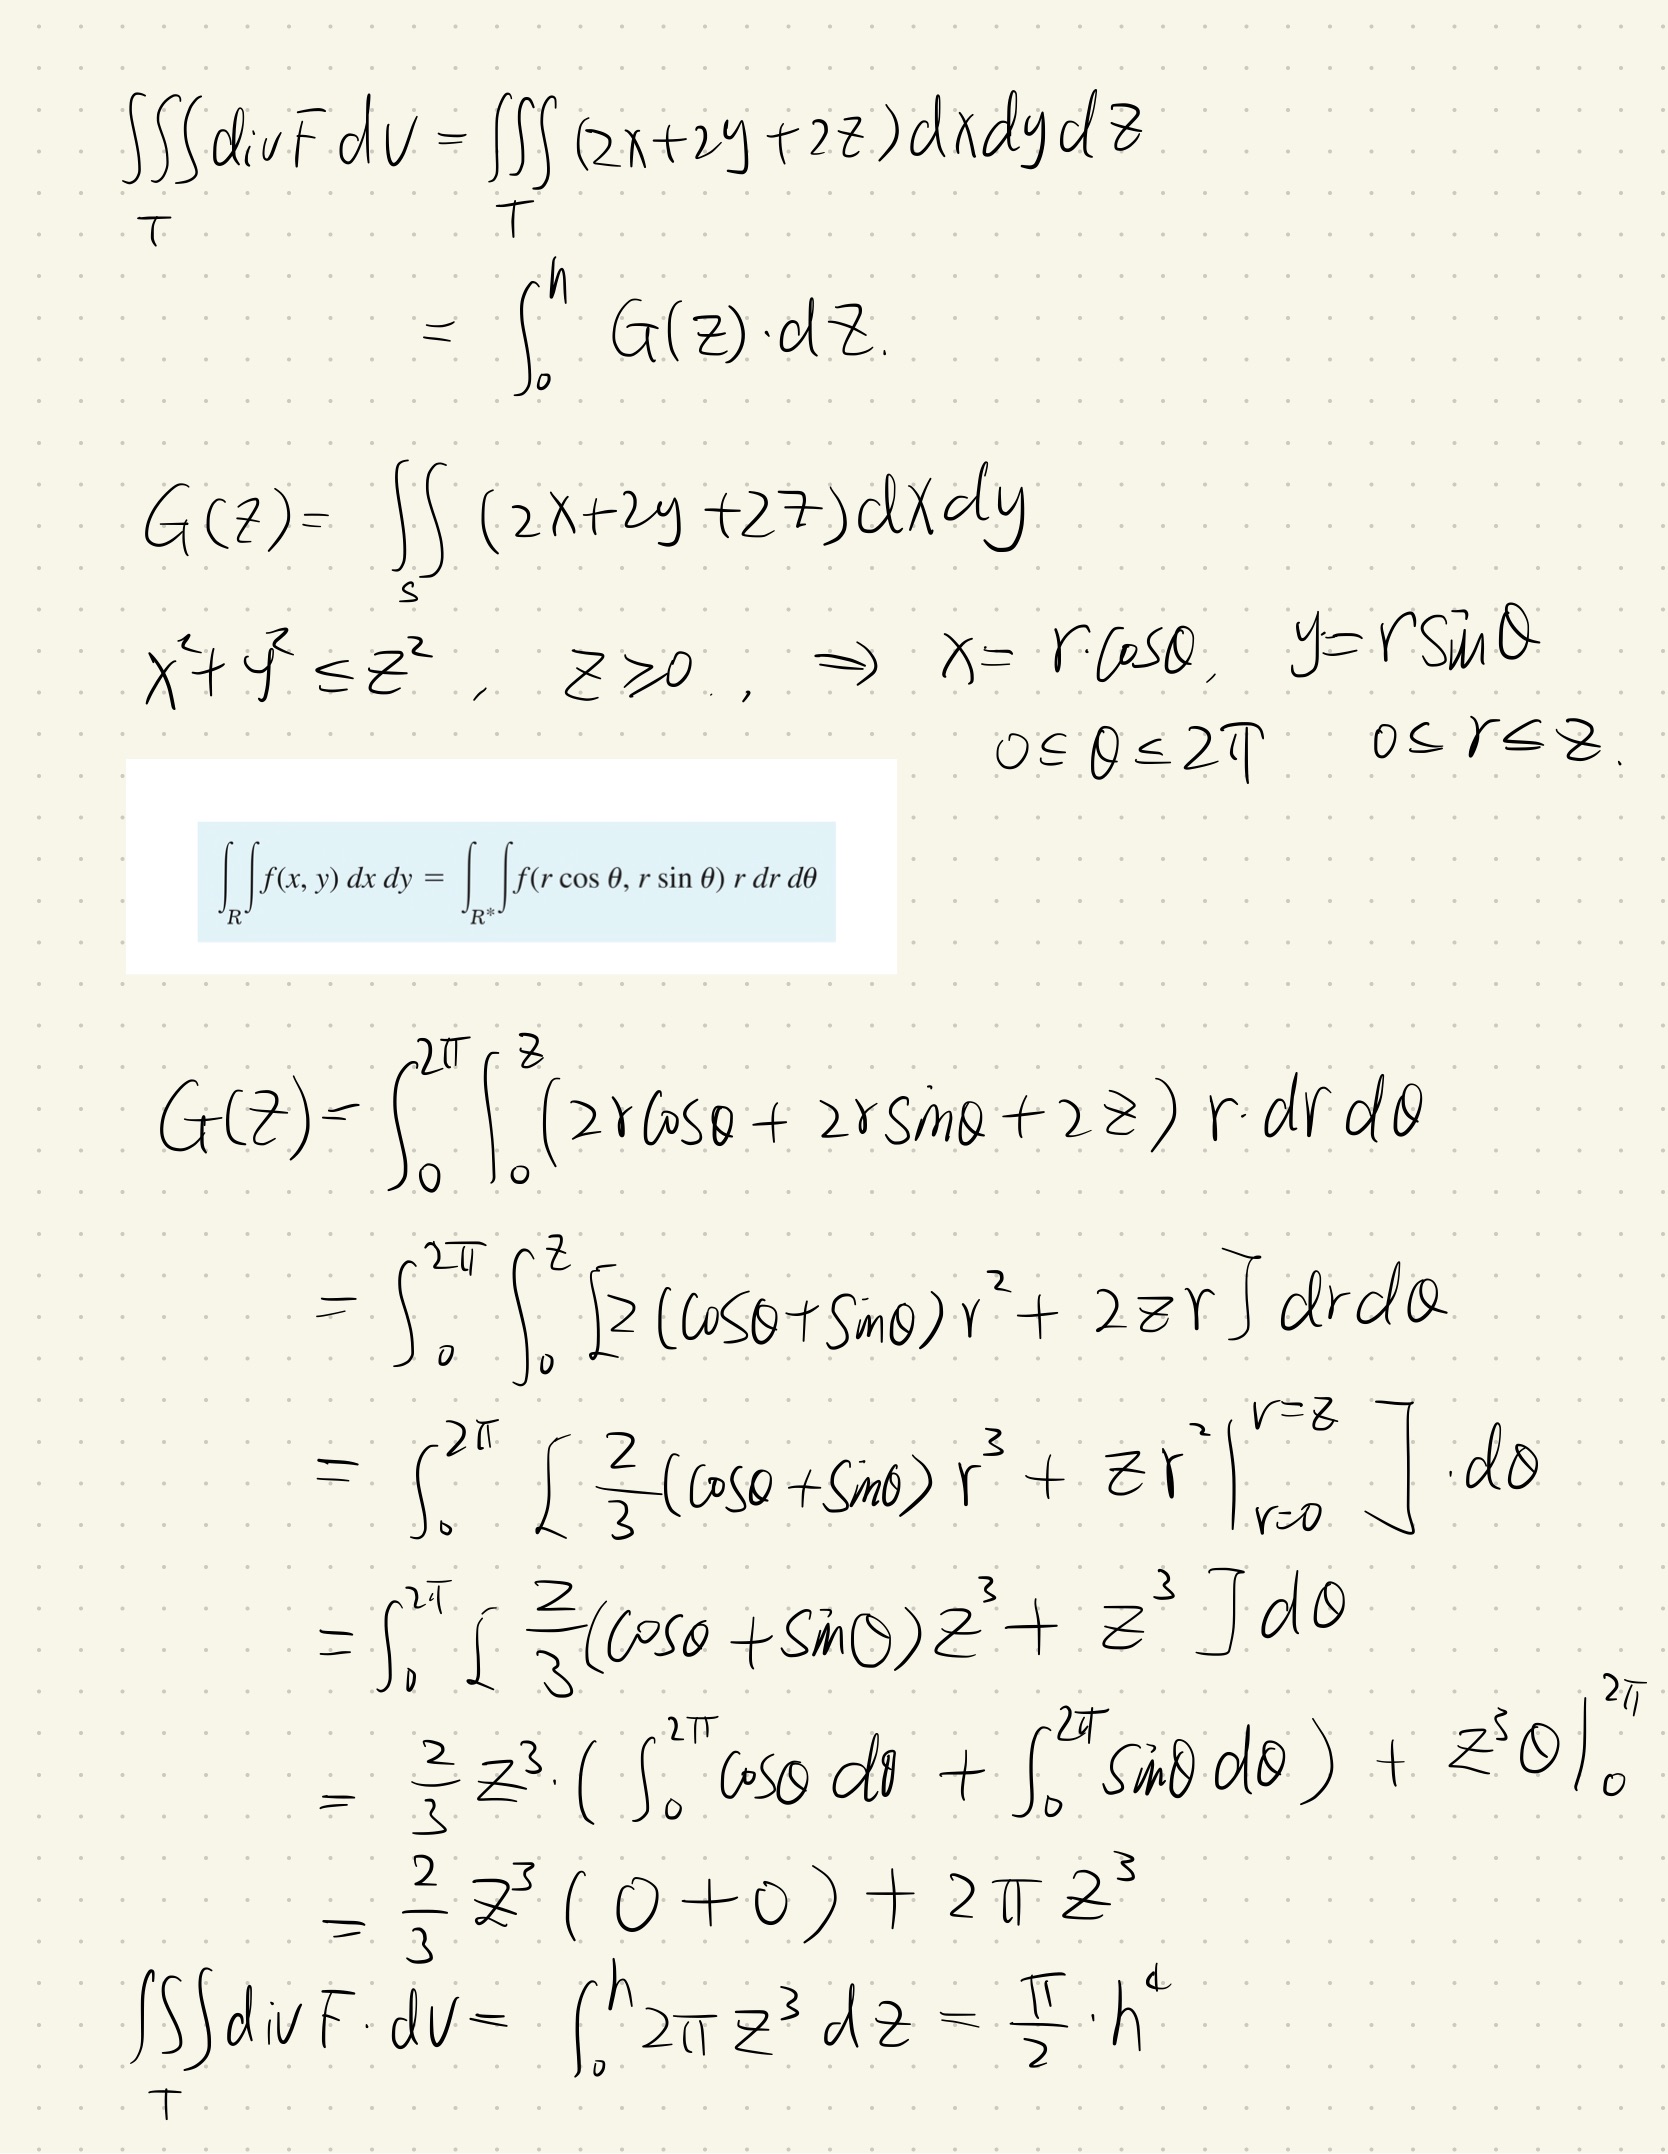 ∭_T div F dV = ∭_T (2x+2y+2z) dx dy dz
= ∫_0^h G(z)·dz.
G(z) = ∬_S (2x+2y+2z) dx dy
x²+y² ≤ z², z ≥ 0, ⇒ x = r·cosθ, y = r sinθ
0 ≤ θ ≤ 2π 0 ≤ r ≤ z.
∫∫_R f(x, y) dx dy = ∫∫_{R*} f(r cos θ, r sin θ) r dr dθ
G(z) = ∫_0^{2π} ∫_0^z (2r cosθ + 2r sinθ + 2z) r·dr dθ
= ∫_0^{2π} ∫_0^z [2(cosθ+sinθ) r² + 2zr] dr dθ
= ∫_0^{2π} [ 2/3 (cosθ+sinθ) r³ + zr² |_{r=0}^{r=z} ]·dθ
= ∫_0^{2π} [ 2/3 (cosθ+sinθ) z³ + z³ ] dθ
= 2/3 z³·( ∫_0^{2π} cosθ dθ + ∫_0^{2π} sinθ dθ ) + z³θ |_0^{2π}
= 2/3 z³ (0+0) + 2π z³
∭_T div F·dV = ∫_0^h 2π z³ dz = π/2·h⁴